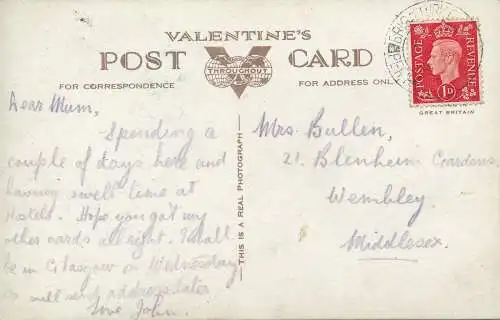 VALENTINE'S
POST CARD
THROUGHOUT
FOR CORRESPONDENCE
FOR ADDRESS ONLY
POSTAGE
REVENUE
1D
GREAT BRITAIN
Dear Mum,
Spending a
couple of days here and
having swell time at
Hotels. Hope you got my
other cards all right. Shall
be in Glasgow on Wednesday
so will send address later
Love John.
THIS IS A REAL PHOTOGRAPH
Mrs. Bullen,
21 Blenheim Gardens,
Wembley,
Middlesex.